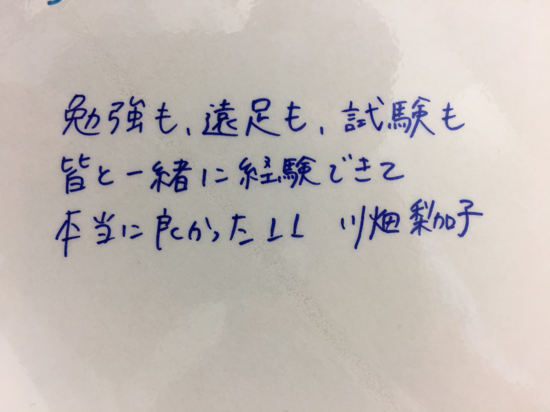 勉強も、遠足も、試験も
皆と一緒に経験できて
本当に良かった!! 川畑梨加子